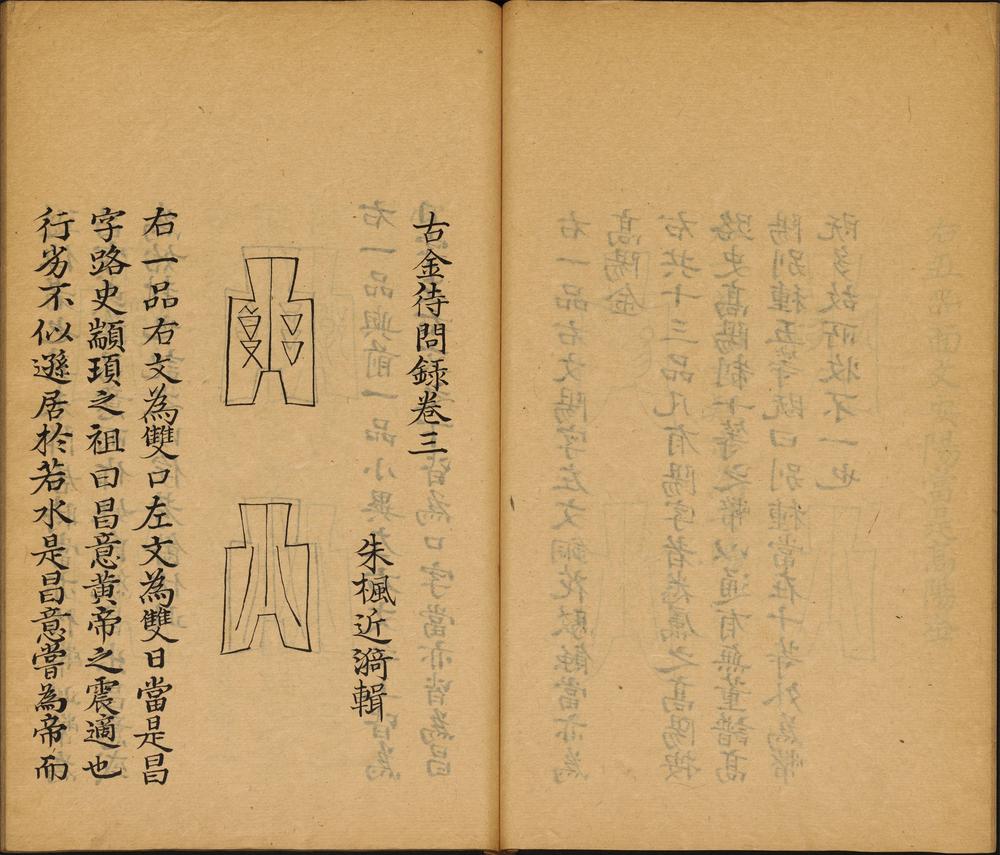 古金待問録卷三
朱楓近漪輯
右一品右文為雙口左文為雙日當是昌
字路史顓頊之祖曰昌意黄帝之震適也
行劣不似遜居扵若水是昌意嘗為帝而